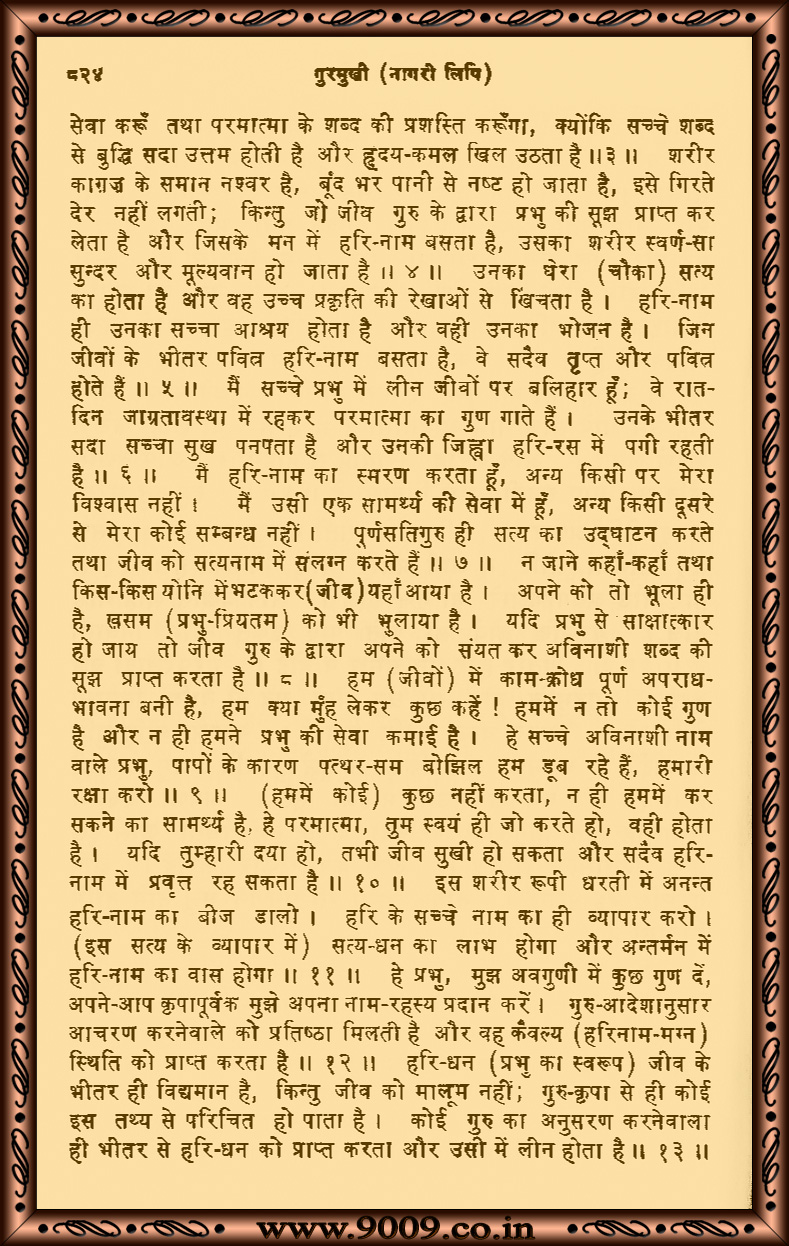 ८२४ गुरमुखी (नागरी लिपि)
सेवा करूँ तथा परमात्मा के शब्द की प्रशस्ति करूँगा, क्योंकि सच्चे शब्द
से बुद्धि सदा उत्तम होती है और हृदय-कमल खिल उठता है॥३॥ शरीर
काग़ज़ के समान नश्वर है, बूंद भर पानी से नष्ट हो जाता है, इसे गिरते
देर नहीं लगती; किन्तु जो जीव गुरु के द्वारा प्रभु की सूझ प्राप्त कर
लेता है और जिसके मन में हरि-नाम बसता है, उसका शरीर स्वर्ण-सा
सुन्दर और मूल्यवान हो जाता है॥ ४॥ उनका घेरा (चौका) सत्य
का होता है और वह उच्च प्रकृति की रेखाओं से खिंचता है। हरि-नाम
ही उनका सच्चा आश्रय होता है और वही उनका भोजन है। जिन
जीवों के भीतर पवित्र हरि-नाम बसता है, वे सदैव तृप्त और पवित्र
होते हैं॥ ५॥ मैं सच्चे प्रभु में लीन जीवों पर बलिहार हूँ; वे रात-
दिन जाग्रतावस्था में रहकर परमात्मा का गुण गाते हैं। उनके भीतर
सदा सच्चा सुख पनपता है और उनकी जिह्वा हरि-रस में पगी रहती
है॥ ६॥ मैं हरि-नाम का स्मरण करता हूँ, अन्य किसी पर मेरा
विश्वास नहीं। मैं उसी एक सामर्थ्य की सेवा में हूँ, अन्य किसी दूसरे
से मेरा कोई सम्बन्ध नहीं। पूर्णसतिगुरु ही सत्य का उद्घाटन करते
तथा जीव को सत्यनाम में संलग्न करते हैं॥ ७॥ न जाने कहाँ-कहाँ तथा
किस-किस योनि में भटककर (जीव) यहाँ आया है। अपने को तो भूला ही
है, खसम (प्रभु-प्रियतम) को भी भुलाया है। यदि प्रभु से साक्षात्कार
हो जाय तो जीव गुरु के द्वारा अपने को संयत कर अविनाशी शब्द की
सूझ प्राप्त करता है॥ ८॥ हम (जीवों) में काम-क्रोध पूर्ण अपराध-
भावना बनी है, हम क्या मुँह लेकर कुछ कहें! हममें न तो कोई गुण
है और न ही हमने प्रभु की सेवा कमाई है। हे सच्चे अविनाशी नाम
वाले प्रभु, पापों के कारण पत्थर-सम बोझिल हम डूब रहे हैं, हमारी
रक्षा करो॥ ९॥ (हममें कोई) कुछ नहीं करता, न ही हममें कर
सकने का सामर्थ्य है, हे परमात्मा, तुम स्वयं ही जो करते हो, वही होता
है। यदि तुम्हारी दया हो, तभी जीव सुखी हो सकता और सदैव हरि-
नाम में प्रवृत्त रह सकता है॥ १०॥ इस शरीर रूपी धरती में अनन्त
हरि-नाम का बीज डालो। हरि के सच्चे नाम का ही व्यापार करो।
(इस सत्य के व्यापार में) सत्य-धन का लाभ होगा और अन्तर्मन में
हरि-नाम का वास होगा॥ ११॥ हे प्रभु, मुझ अवगुणी में कुछ गुण दें,
अपने-आप कृपापूर्वक मुझे अपना नाम-रहस्य प्रदान करें। गुरु-आदेशानुसार
आचरण करनेवाले को प्रतिष्ठा मिलती है और वह कैवल्य (हरिनाम-मग्न)
स्थिति को प्राप्त करता है॥ १२॥ हरि-धन (प्रभु का स्वरूप) जीव के
भीतर ही विद्यमान है, किन्तु जीव को मालूम नहीं; गुरु-कृपा से ही कोई
इस तथ्य से परिचित हो पाता है। कोई गुरु का अनुसरण करनेवाला
ही भीतर से हरि-धन को प्राप्त करता और उसी में लीन होता है॥ १३॥
www.9009.co.in